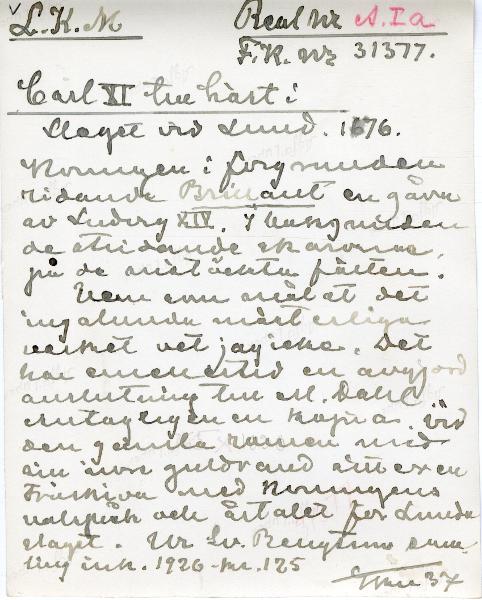 L.K.M Real Nr A.I a
F.K. Nr 31377.
Carl XI till häst i
slaget vid Lund. 1676.
Konungen i förgrunden
ridande Brillant en gåva
av Ludvig XIV. I bakgrunden
de stridande skarorna,
på de snötäckta fälten.
Vem som målat det
ingalunda mästerliga
verket vet jag icke. Det
har emellertid en avgjord
anslutning till M. Dahl.
Antagligen en kopia. Vid
den gamla ramen med
sin inre guldrand sitter en
Träskiva med Konungens
valspråk och årtalet för Lunda
slaget. Ur Sv. Bengtsons sam-
ling ink. 1926 - kr. 125
37